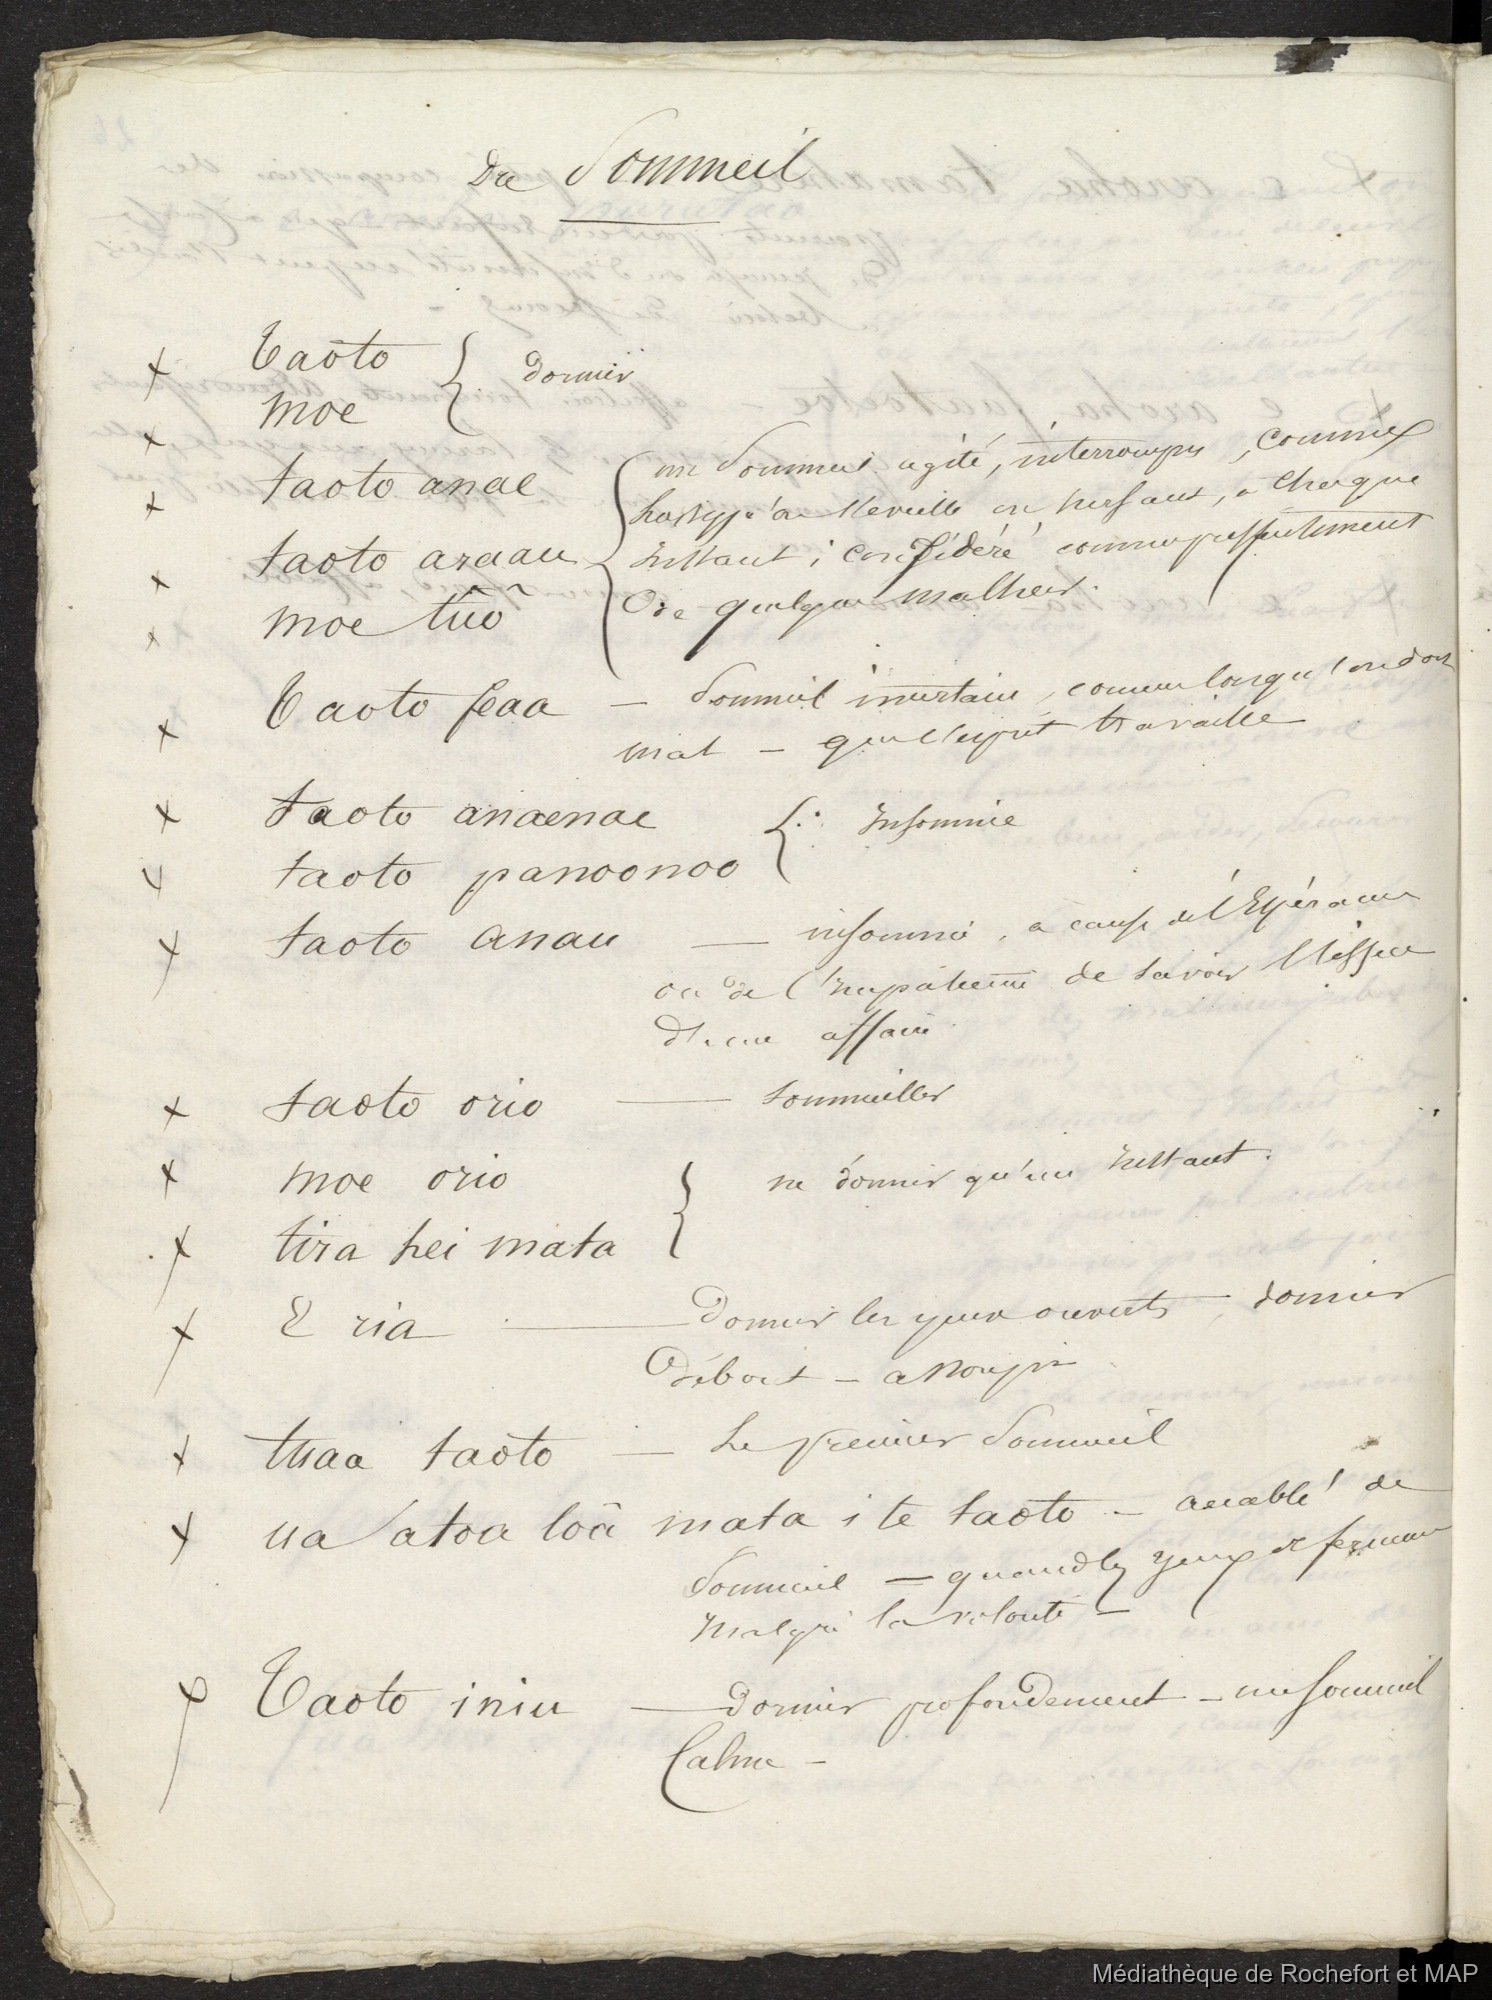 Du Sommeil
Taōto
moe
} dormir
taoto anae
taoto araau
moe tūō
{ un Sommeil agité, interrompu, comme
lorsqu'on s'eveille en sursaut, a chaque
instant ; considéré comme pressentiment
de quelque malheur.
Taoto feaa — Sommeil incertain, comme lorsque l'on dort
mal — que l'esprit travaille
taoto anaenae
taoto panoonoo
{ insomnie
taoto anau — insomnie, a cause de l'Espérance
ou de l'impatience de savoir l'issue
d'une affaire.
taoto orio — sommeiller
moe orio
tira hei mata
} ne dormir qu'un instant.
E ria — Dormir les yeux ouverts, dormir
débout — assoupir
tuaa taōto — Le premier Sommeil
ua atoa loā mata i te taoto — accablé de
Sommeil — quand les yeux se ferment
malgré la volonté —
Taoto iniu — dormir profondement — un sommeil
Calme —
Médiathèque de Rochefort et MAP